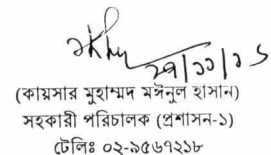 ২৯/১১/১৬
(কায়সার মুহাম্মদ মঈনুল হাসান)
সহকারী পরিচালক (প্রশাসন-১)
টেলিঃ ০২-৯৫৬৭২১৮